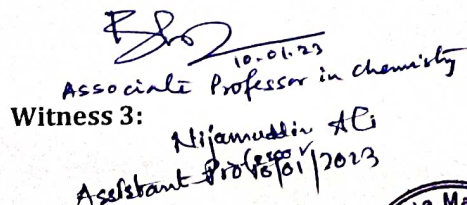 10.01.23
Associate Professor in chemistry
Witness 3:
Nijamuddin Ali
Assistant Professor
10/01/2023